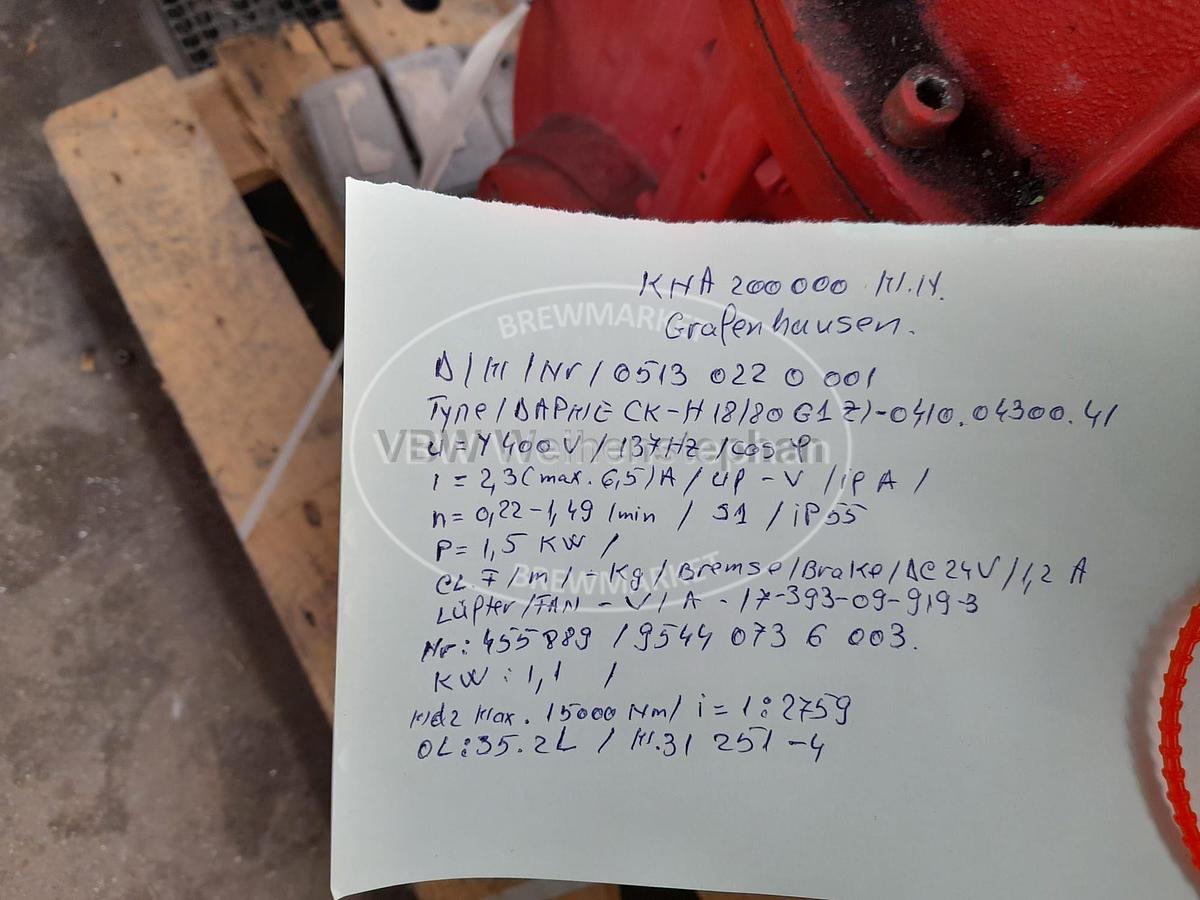 KHA 200000 M.M.
Grafenhausen.
D/M/Nr/0513 022 0 001
Type/DAPM/E CK-H (8/80 G1 Z)-0410.04300.41
U=Y 400 V / 137Hz / cos φ
I = 2,3(max. 6,5)A / UP - V / iP A /
n= 0,22-1,49 /min / S1 / iP55
P= 1,5 KW /
CL.F/m/ - Kg / Bremse/Brake/DC 24V/1,2 A
Lüfter/FAN - V/A - 17-393-09-919-3
Nr: 455889 / 9544 073 6 003.
KW: 1,1 /
Md2 Max. 15000 Nm/ i = 1:2759
OL:35.2L / M.31 251-4
BREWMARKET
VBW Weihenstephan
BREWMARKET